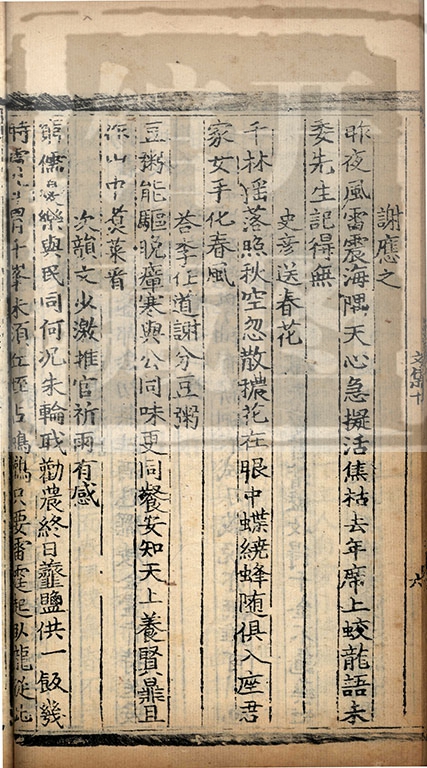 謝應之
昨夜風雷震海隅天心急擬活焦枯去年席上蛟龍語未
委先生記得無
史彥送春花
千林摇落照秋空忽散穠花在眼中蝶繞蜂随俱入座君
家女手化春風
荅李任道謝分豆粥
豆粥能驅晚瘴寒與公同味更同餐安知天上養賢鼎且
作山中煑菜看
次韻文少激推官祈雨有感
窮儒憂樂與民同何况朱輪職勸農終日虀鹽供一飯幾
時膚寸千峯未須丘垤占鳴鸛只要雷霆起卧龍從此
文集十
六